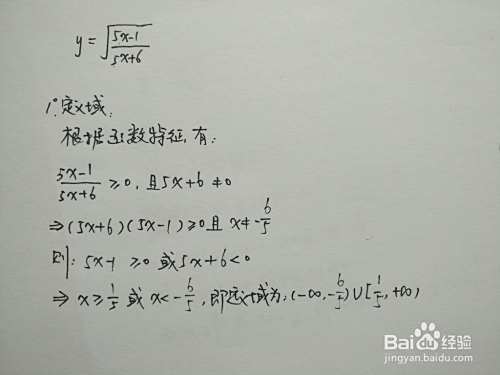 y = √((5x-1)/(5x+6))
1° 定义域:
根据函数特征,有:
(5x-1)/(5x+6) ≥0,且5x+6≠0
⇒(5x+6)(5x-1)≥0且 x≠-6/5
则:5x-1≥0或5x+6<0
⇒ x≥1/5 或 x<-6/5,即定义域为:(-∞,-6/5)∪[1/5,+∞)
Baidu经验
jingyan.baidu.com